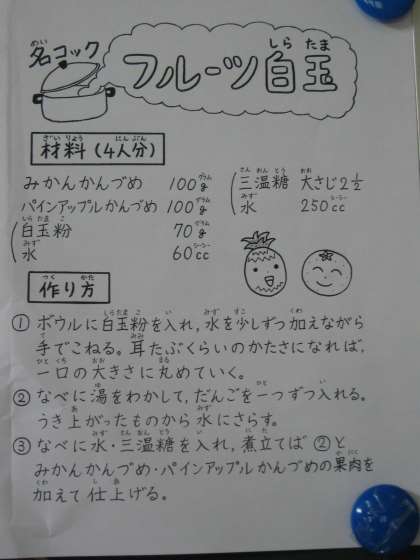 名コック
フルーツ白玉
材料(4人分)
みかんかんづめ 100g
パインアップルかんづめ 100g
白玉粉 70g
水 60cc
三温糖 大さじ2½
水 250cc
作り方
①ボウルに白玉粉を入れ,水を少しずつ加えながら
手でこねる。耳たぶくらいのかたさになれば,
一口の大きさに丸めていく。
②なべに湯をわかして,だんごを一つずつ入れる。
うき上がったものから水にさらす。
③なべに水・三温糖を入れ,煮立てば②と
みかんかんづめ・パインアップルかんづめの果肉を
加えて仕上げる。